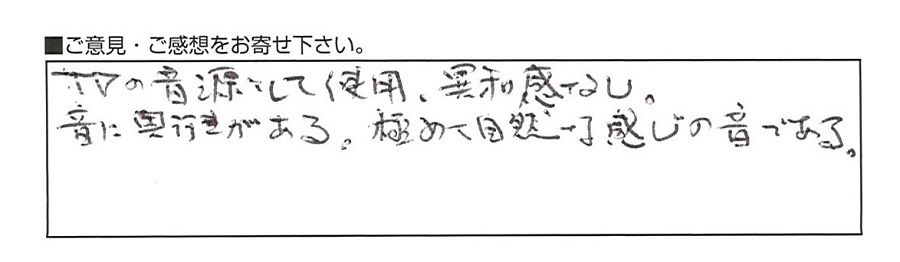 ■ご意見・ご感想をお寄せ下さい。
TVの音源として使用、異和感なし。
音に奥行きがある。極めて自然な感じの音である。